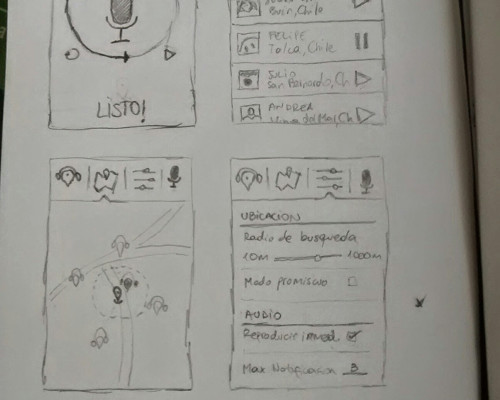 LISTO!
Buin, Chile
FELIPE
Talca, Chile
JULIO
San Bernardo, Ch
ANDREA
Viña del Mar, Ch
UBICACION
Radio de busqueda
10M 1000M
Modo promiscuo
AUDIO
Reproducir
Max Notificacion 3